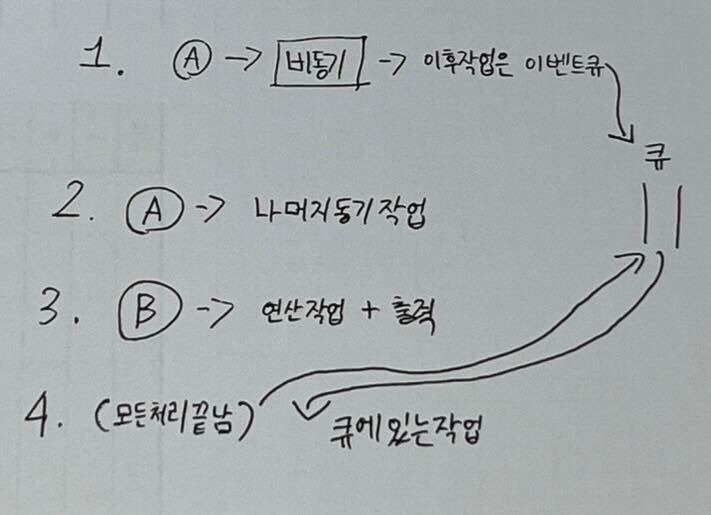 1. A -> 비동기 -> 이후작업은 이벤트큐
큐
2. A -> 나머지동기작업
3. B -> 연산작업 + 출력
4. (모든처리끝남) 큐에있는작업